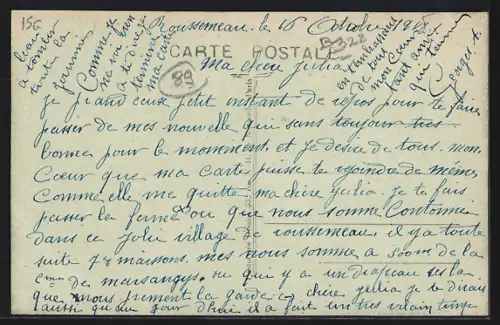 15€
Roussemeau. le 16 Octobre 1918
CARTE POSTALE
B322
89
Ma chère Julia
Je prend ceux petit instant de repos pour te faire
passer de mes nouvelle qui sans toujour très
bonne pour le momment et je desire de tous mon
Cœur que ma Carte puisse te rejoindre de même
Comme elle me quitte ma chère julia. Je te fais
passer la ferme ou que nous somme Contonné
dans ce jolie village de roussemeau. il y a toute
suite 78 maisons. mes nous somme a 500m de la
Cmne de marsangys ou qui y a un drapeau ses la
que nous prement la garde. chère julia je te dirais
aussi qu'au jour d'hui il a fait un très vilain temp
lieu
a tomber
toute la
journée
Comme je
ne voi rien
a te dire je
termine
ma carte
en t'embrassant
de tout
mon Cœur
ton ami
qui t'aime
Georges A.